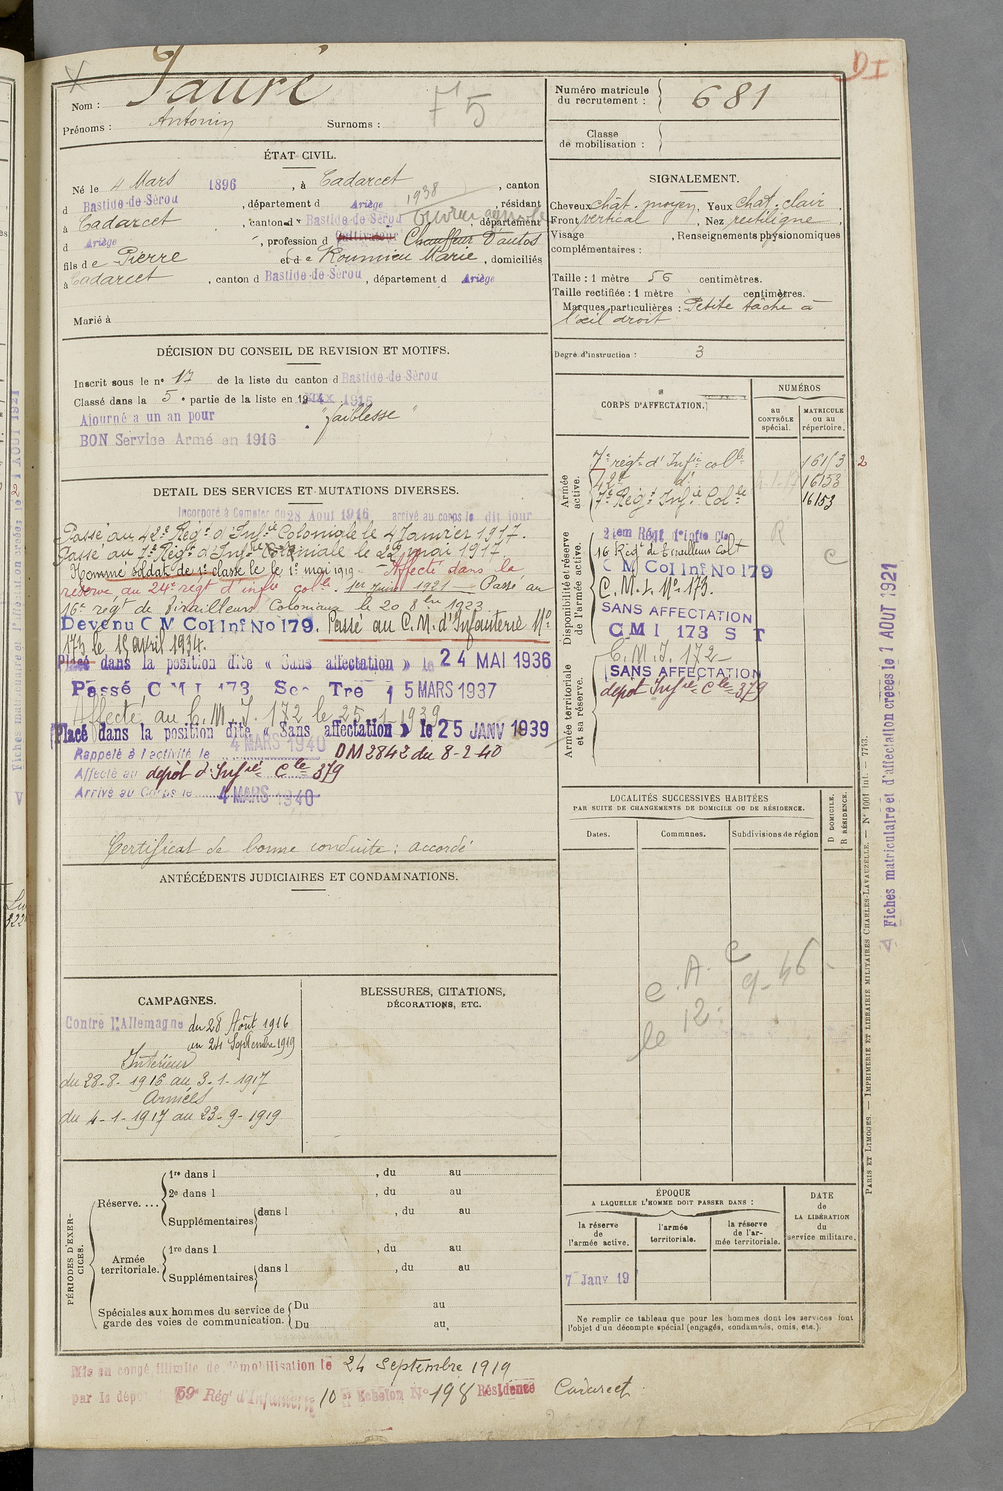 DI
X
Nom : Fauré
Prénoms : Antonin Surnoms :
75
Numéro matricule
du recrutement : 681
Classe
de mobilisation :
ÉTAT CIVIL.
Né le 4 Mars 1896, à Cadarcet, canton
d Bastide-de-Sérou, département d Ariège, résidant
1938
à Cadarcet, canton d Bastide-de-Sérou, département
ouvrier agricole
d Ariège, profession d Cultivateur Chauffeur d'autos
fils de Pierre et de Roumieu Marie, domiciliés
à Cadarcet, canton d Bastide-de-Sérou, département d Ariège
Marié à
SIGNALEMENT.
Cheveux chât. moyen, Yeux chat. clair,
Front vertical, Nez rectiligne
Visage , Renseignements physionomiques
complémentaires :
Taille : 1 mètre 56 centimètres.
Taille rectifiée : 1 mètre centimètres.
Marques particulières : Petite tache à
l'œil droit
Degré d'instruction : 3
DÉCISION DU CONSEIL DE REVISION ET MOTIFS.
Inscrit sous le n° 17 de la liste du canton d Bastide-de-Sérou
Classé dans la 5e partie de la liste en 1915
Ajourné a un an pour "faiblesse"
BON Service Armé en 1916
DETAIL DES SERVICES ET MUTATIONS DIVERSES.
Incorporé à Compter du 28 Aout 1916 arrivé au corps le dit jour
Passé au 42e Régt d'Infie Coloniale le 4 Janvier 1917.
Passé au 7e Régt d'Infie Coloniale le 22 mai 1917
Nommé soldat de 1e classe le 1er mai 1919 - Affecté dans la
réserve au 24e régt d'infie colle. 1er Juin 1921 Passé au
16e régt de Tirailleurs Coloniaux le 20 8bre 1923.
Devenu C M Col Inf No 179. Passé au C.M. d'Infanterie No
173 le 15 avril 1934.
Placé dans la position dite « Sans affectation » le 24 MAI 1936
Passé C M I 173 Son Tre 15 MARS 1937
Affecté au C.M.I. 172 le 25.1.1939
Placé dans la position dite « Sans affectation » le 25 JANV 1939
Rappelé à l'activité le 4 MARS 1940 DM 2842 du 8-2-40
Affecté au depot d'Infie Cle 379
Arrivé au Corps le 4 MARS 1940
Certificat de bonne conduite : accordé
CORPS D'AFFECTATION.
NUMÉROS
AU
CONTRÔLE
spécial.
MATRICULE
ou au
répertoire.
Armée
active.
7e régt d'Infie colle 16153 2
42e d° 4-1-17 16153
7e Régt Infie Colle 16153
Disponibilité et réserve
de l'armée active.
16 Régt de Tirailleurs Colx
C M Col Inf No 179
C.M.I. No 173.
SANS AFFECTATION
C M I 173 S T
R
C
Armée territoriale
et sa réserve.
C.M.I. 172
SANS AFFECTATION
depot Infie Cle 379
LOCALITÉS SUCCESSIVES HABITÉES
PAR SUITE DE CHANGEMENTS DE DOMICILE OU DE RÉSIDENCE.
Dates.
Communes.
Subdivisions de région
D DOMICILE.
R RÉSIDENCE.
ANTÉCÉDENTS JUDICIAIRES ET CONDAMNATIONS.
CAMPAGNES.
Contre l'Allemagne du 28 Août 1916
au 24 Septembre 1919
Intérieur
du 28-8-1916 au 3-1-1917
Armées
du 4-1-1917 au 23-9-1919
BLESSURES, CITATIONS,
DÉCORATIONS, ETC.
PÉRIODES D'EXERCICES.
Réserve....
1re dans l , du au
2e dans l , du au
Supplémentaires dans l , du au
Armée
territoriale.
1re dans l , du au
Supplémentaires dans l , du au
Spéciales aux hommes du service de
garde des voies de communication.
Du au
Du au
ÉPOQUE
A LAQUELLE L'HOMME DOIT PASSER DANS :
la réserve
de
l'armée active.
l'armée
territoriale.
la réserve
de l'armée territoriale.
DATE
de
LA LIBÉRATION
du
service militaire.
7 Janv 19
Ne remplir ce tableau que pour les hommes dont les services font
l'objet d'un décompte spécial (engagés, condamnés, omis, etc.).
Mis en congé illimité de démobilisation le 24 Septembre 1919
par le dépôt 59e Régt d'Infanterie 10e Echelon No 198 Résidence Cadarcet
PARIS ET LIMOGES. — IMPRIMERIE ET LIBRAIRIE MILITAIRES CHARLES-LAVAUZELLE. — N° 1001 int. — 7743.
Fiches matriculaire et d'affectation créées le 1 AOUT 1921